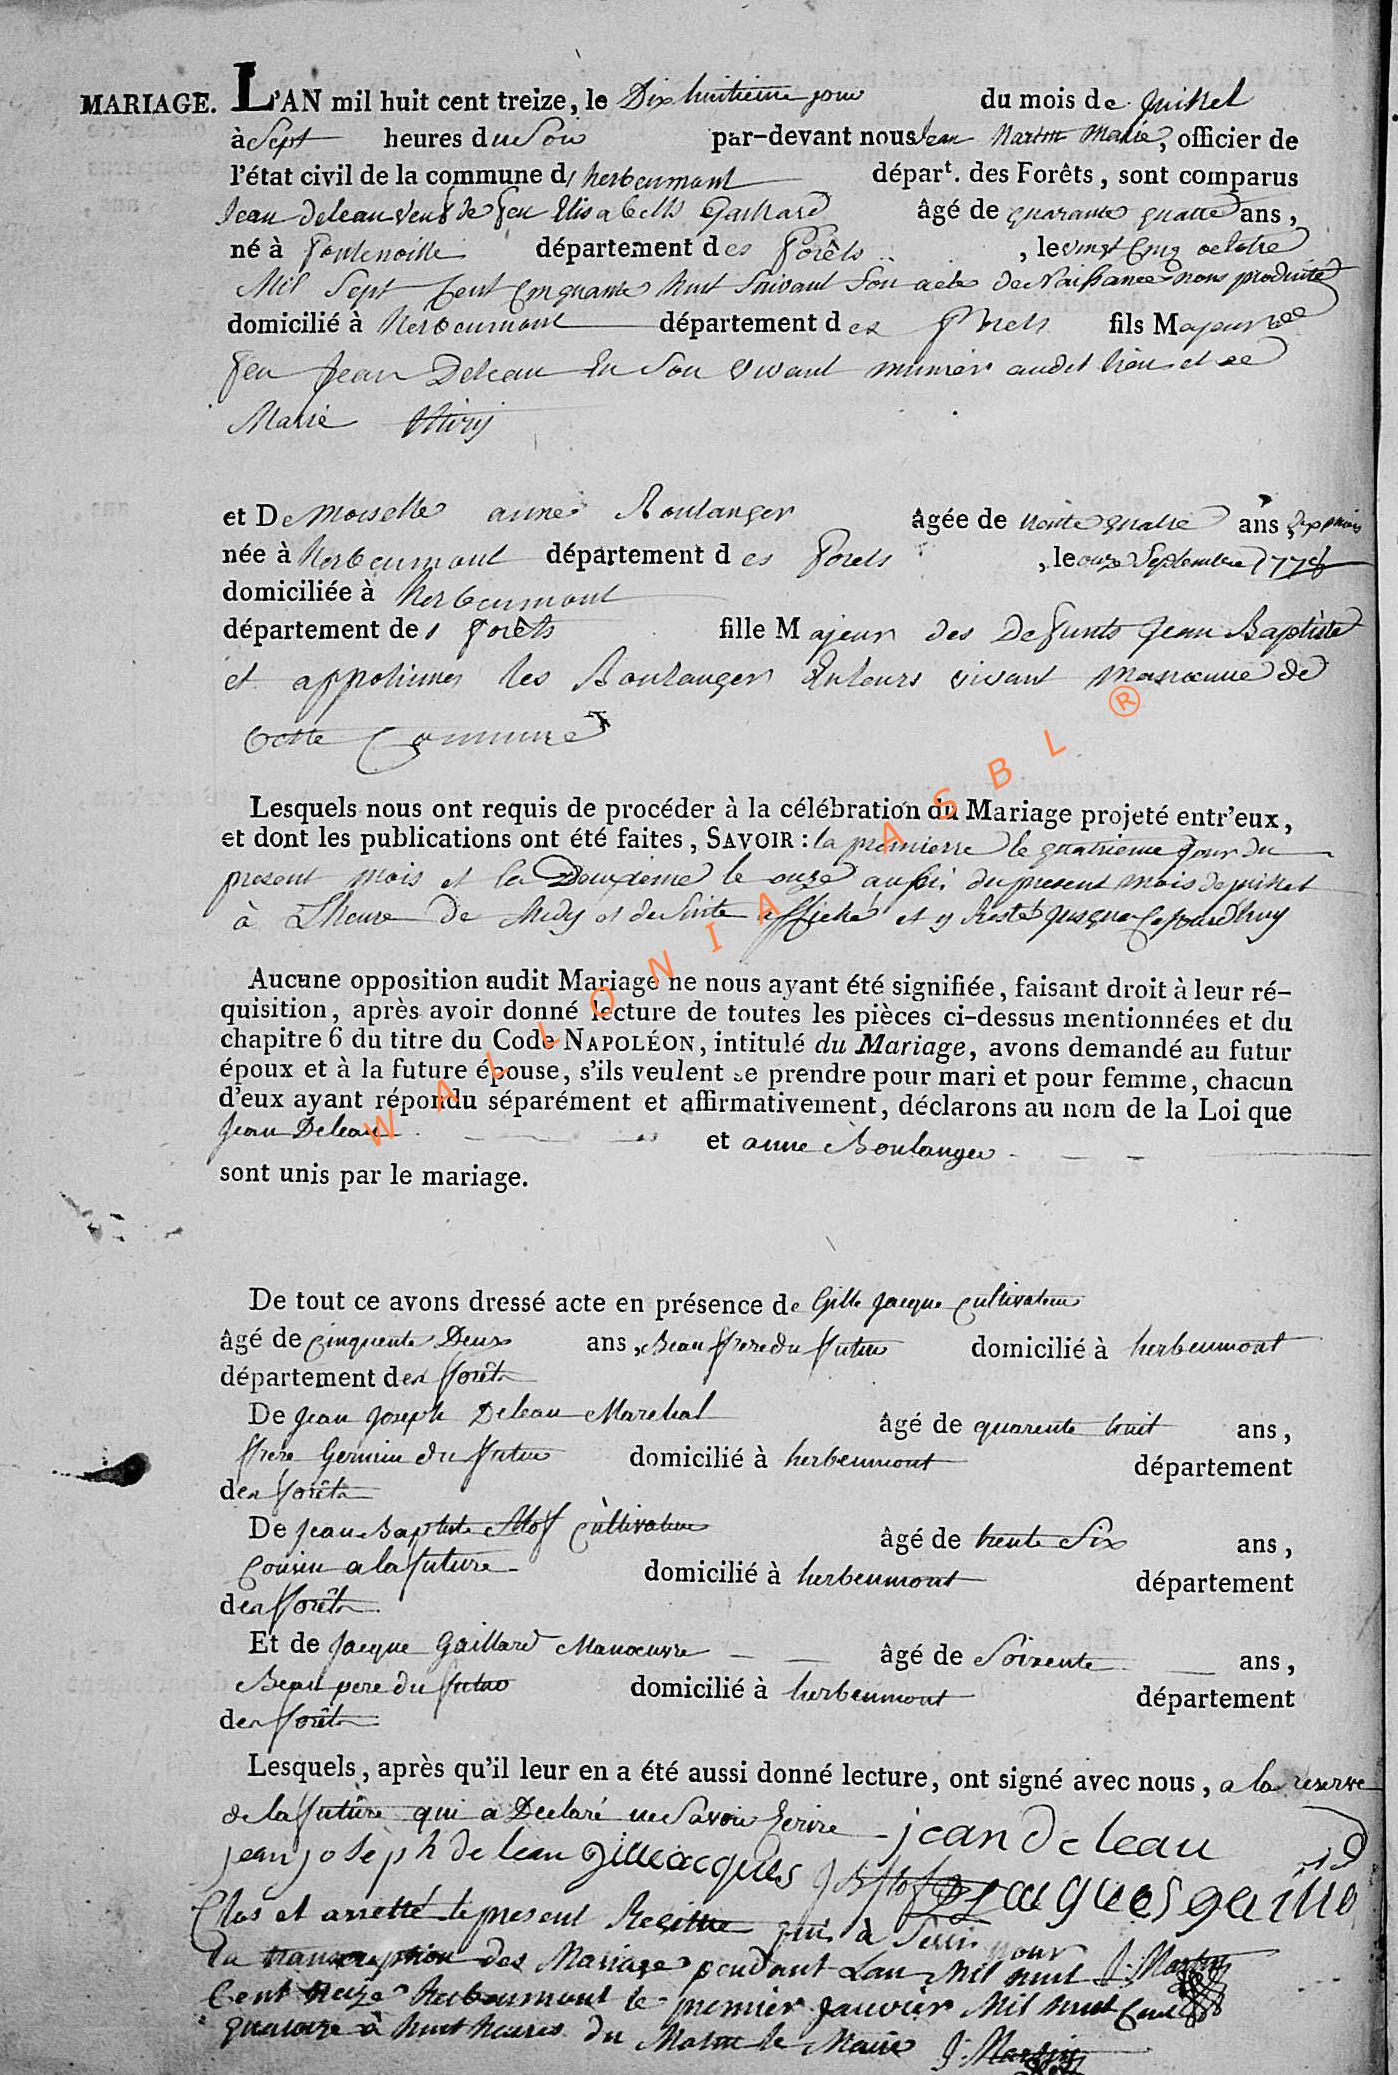 MARIAGE. L'AN mil huit cent treize, le Dix huitieme jour du mois de juillet
à Sept heures du Soir par-devant nous Jean Martin Maire, officier de
l'état civil de la commune d, herbeumont départ. des Forêts, sont comparus
Jean deleau veuf de feu Elisabeth Gaillard âgé de quarante quatre ans,
né à Fontenoille département des Forêts, le vingt Cinq octobre
Mil Sept Cent Cinquante huit Suivant Son acte de Naissance nous produite
domicilié à herbeumont département des Forets fils Majeur de
feu Jean Deleau En Son vivant munier audit lieu et de
Marie
et Demoiselle anne Boulanger âgée de trente quatre ans dix mois
née à herbeumont département des Forets, le onze Septembre 1778
domiciliée à herbeumont
département des Forêts fille Majeur des Defunts Jean Baptiste
et appolinnes les Boulanger En leurs vivant manoeuvre de
Cette Commune
Lesquels nous ont requis de procéder à la célébration du Mariage projeté entr'eux,
et dont les publications ont été faites, SAVOIR : la premierre le quatrieme jour du
present mois et la Deuxieme le onze aussi du present mois de juillet
à L'heure de Midy et de Suite affiché et y Resté jusque Cejourdhuy
Aucune opposition audit Mariage ne nous ayant été signifiée, faisant droit à leur ré-
quisition, après avoir donné lecture de toutes les pièces ci-dessus mentionnées et du
chapitre 6 du titre du Code NAPOLÉON, intitulé du Mariage, avons demandé au futur
époux et à la future épouse, s'ils veulent se prendre pour mari et pour femme, chacun
d'eux ayant répondu séparément et affirmativement, déclarons au nom de la Loi que
Jean Deleau et anne Boulanger
sont unis par le mariage.
WALLONIA ASBL ®
De tout ce avons dressé acte en présence de Gille Jacque Cultivateur
âgé de Cinquente Deux ans, Beau frere du futur domicilié à herbeumont
département des forêts
De Jean Joseph Deleau Marechal âgé de quarente huit ans,
frere Germin du futur domicilié à herbeumont département
des forêts
De Jean Baptiste Cultivateur âgé de trente Six ans,
Cousin a la future domicilié à herbeumont département
des forêts
Et de Jacque Gaillard Manoeuvre âgé de Soixente ans,
Beau pere du futur domicilié à herbeumont département
des forêts
Lesquels, après qu'il leur en a été aussi donné lecture, ont signé avec nous, a la reserve
de la future qui a Declaré ne Savoir Ecrire jean deleau
jean joseph deleau Gille jacques jacques gaillard
Clos et arretté le present Registre qui à Servi pour
la transcription des Mariage pendant Lan Mil huit J: Martin
Cent treize herbeumont le premier Janvier Mil huit Cent
quatorze à huit heures du Matin le Maire J: Martin